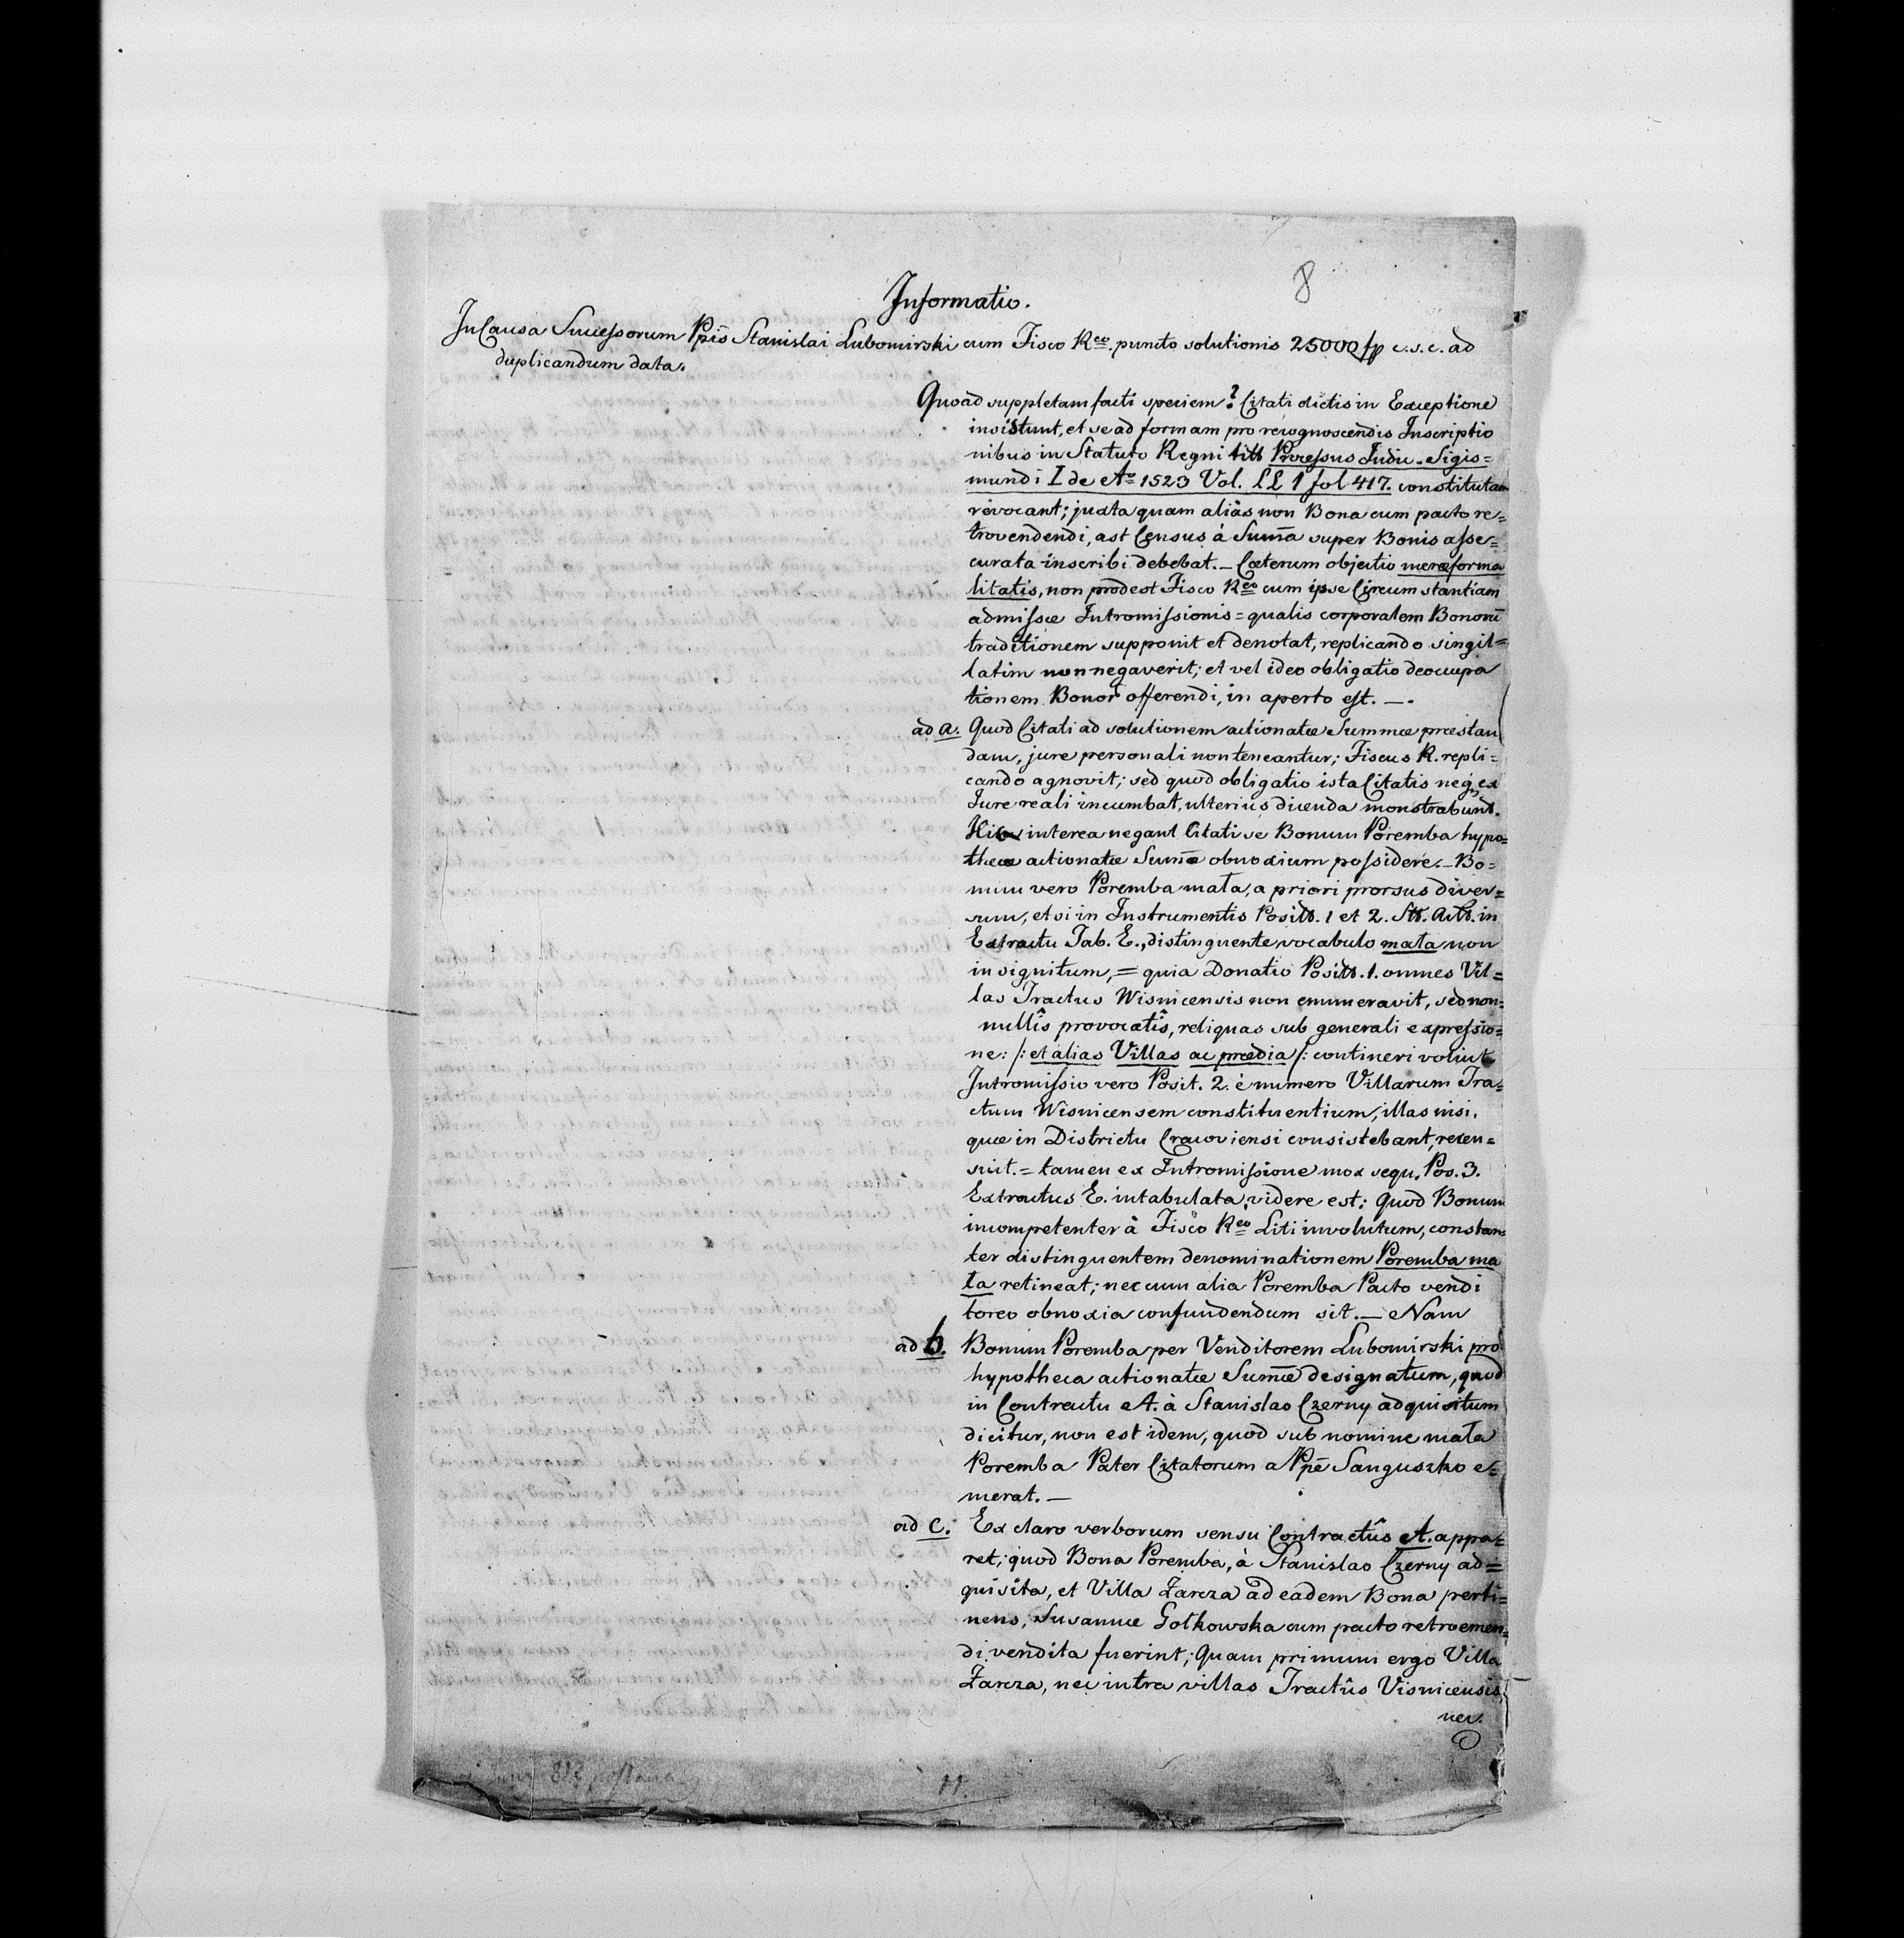 8
Informatio.
In Causa Successorum Ppis Stanislai Lubomirski cum Fisco Reo. puncto solutionis 25000 fp c.s.c. ad
duplicandum data.
Quoad suppletam facti speciem? Citati dictis in Exceptione
insistunt, et se ad formam pro recognoscendis Inscriptio
nibus in Statuto Regni titt Processus Judic. Sigis=
mundi I de Ao 1523 Vol. LL 1 fol 417. constitutam
revocant; juxta quam aliàs non Bona cum pacto re=
trovendendi, ast Census à Suma super Bonis asse=
curata inscribi debebat. _ Cœterum objectio meræ forma
litatis, non prodest Fisco Reo cum ipse Circumstantiam
admissæ Intromissionis = qualis corporalem Bonorū
traditionem supponit et denotat, replicando singil=
latim non negaverit; et vel ideo obligatio deoccupa
tionem Bonor offerendi, in aperto est. _.
ad a. Quod Citati ad solutionem actionatæ Summæ præstan
dam, jure personali non teneantur; Fiscus R. repli=
cando agnovit; sed quod obligatio ista Citatis neq ex
Jure reali incumbat, ulterius dicenda monstrabunt.
interea negant Citati se Bonum Poremba hypo=
thecæ actionatæ Sumæ obnoxium possidere. _ Bo=
num vero Poremba mała, a priori prorsus diver=
sum, etsi in Instrumentis Positt. 1 et 2. Stt. Actt. in
Extractu Tab. E., distinguente vocabulo mała non
insignitum, = quia Donatio Positt. 1. omnes Vil=
las Tractus Wisnicensis non enumeravit, sed non=
nullîs provocatîs, reliquas sub generali expressio=
ne: /: et alias Villas ac prædia /: contineri voluit
Intromissio vero Posit. 2. è numero Villarum Tra=
ctum Wisnicensem constituentium, illas nisi,
quæ in Districtu Cracoviensi consistebant, recen=
suit. = tamen ex Intromissione mox sequ. Pos. 3.
Extractus E. intabulata, videre est: Quod Bonum
incompetenter à Fisco Reo Liti involutum, constan=
ter distinguentem denominationem Poremba ma
ła retineat; nec cum alia Poremba Pacto vendi
toreo obnoxia confundendum sit. _ Nam
ad b. Bonum Poremba per Venditorem Lubomirski pro
hypotheca actionatæ Sumæ designatum, quod
in Contractu A. à Stanislao Czerny adquisitum
dicitur, non est idem, quod sub nomine mała
Poremba Pater Citatorum a Ppe Sanguszko e=
merat. _
ad c. Ex claro verborum sensu Contractûs A. appa=
ret; quod Bona Poremba, à Stanislao Czerny ad=
quisita, et Villa Żarcza ad eadem Bona perti=
nens, Susannæ Gołkowska cum pacto retroemen=
di vendita fuerint; Quam primum ergo Villa
Żarcza, nec intra villas Tractûs Visnicensis,
nec.
11.